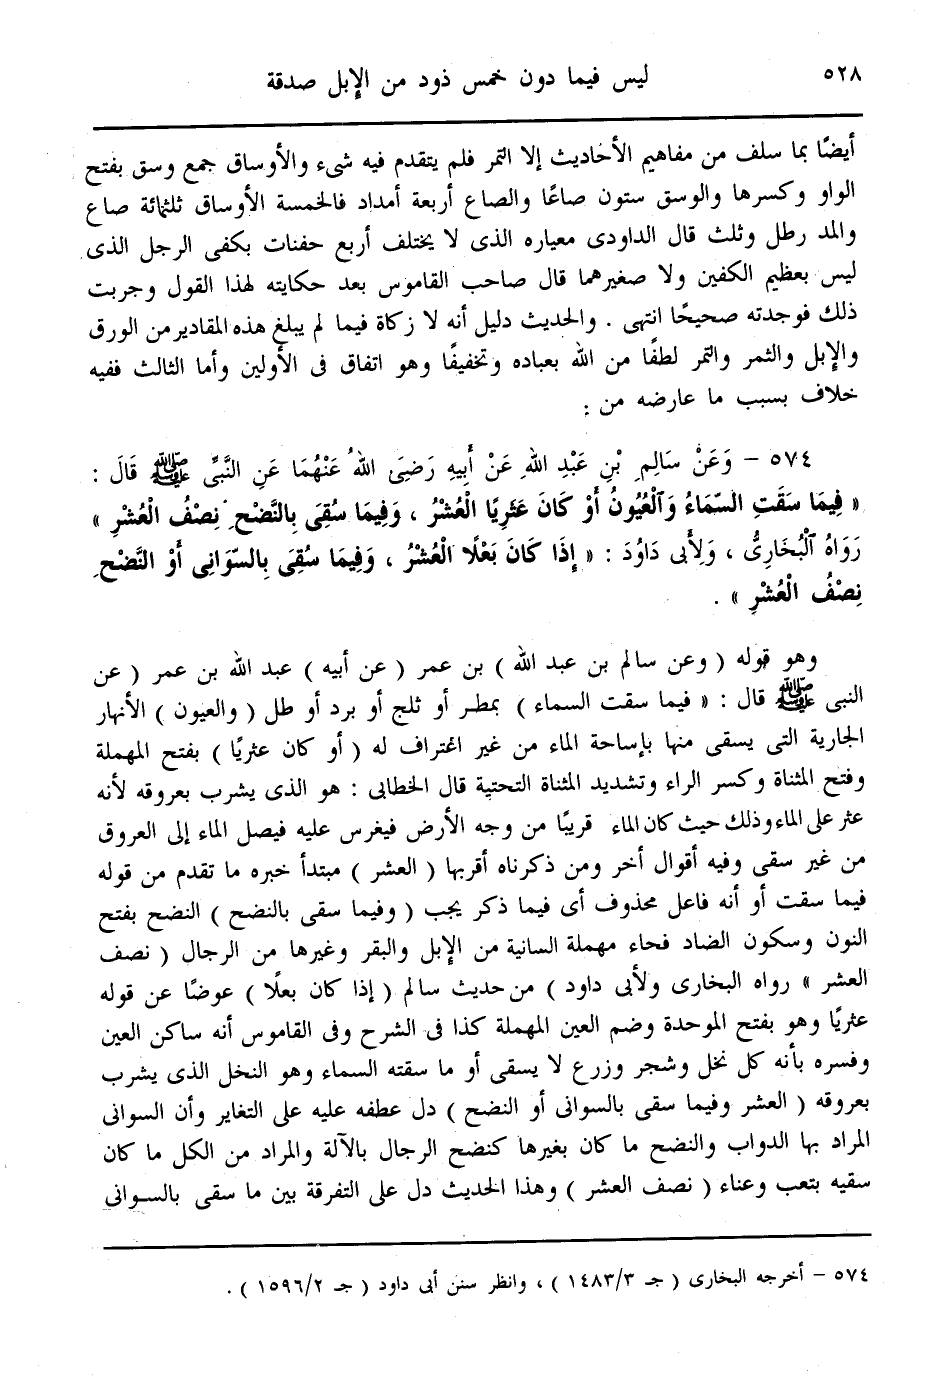 ٥٢٨
ليس فيما دون خمس ذود من الإبل صدقة
أيضًا بما سلف من مفاهيم الأحاديث إلا التمر فلم يتقدم فيه شىء والأوساق جمع وسق بفتح
الواو وكسرها والوسق ستون صاعًا والصاع أربعة أمداد فالخمسة الأوساق ثلثمائة صاع
والمد رطل وثلث قال الداودى معياره الذى لا يختلف أربع حفنات بكفى الرجل الذى
ليس بعظيم الكفين ولا صغيرهما قال صاحب القاموس بعد حكايته لهذا القول وجربت
ذلك فوجدته صحيحًا انتهى . والحديث دليل أنه لا زكاة فيما لم يبلغ هذه المقادير من الورق
والإبل والثمر والتمر لطفًا من الله بعباده وتخفيفًا وهو اتفاق فى الأولين وأما الثالث ففيه
خلاف بسبب ما عارضه من :
٥٧٤ – وَعَنْ سَالِمِ بْنِ عَبْدِ اللهِ عَنْ أَبِيهِ رَضِىَ اللهُ عَنْهُمَا عَنِ النَّبِىِّ ﷺ قَالَ :
« فِيمَا سَقَتِ السَّمَاءُ وَالْعُيُونُ أَوْ كَانَ عَثَرِيًا الْعُشْرُ ، وَفِيمَا سُقِىَ بِالنَّضْحِ نِصْفُ الْعُشْرِ »
رَوَاهُ الْبُخَارِىُّ ، وَلِأَبِى دَاوُدَ : « إِذَا كَانَ بَعْلًا الْعُشْرُ ، وَفِيمَا سُقِىَ بِالسَّوَانِى أَوْ النَّضْحِ
نِصْفُ الْعُشْرِ » .
وهو قوله ( وعن سالم بن عبد الله ) بن عمر ( عن أبيه ) عبد الله بن عمر ( عن
النبى ﷺ قال : « فيما سقت السماء ) بمطر أو ثلج أو برد أو طل ( والعيون ) الأنهار
الجارية التى يسقى منها بإساحة الماء من غير اغتراف له ( أو كان عثريًا ) بفتح المهملة
وفتح المثناة وكسر الراء وتشديد المثناة التحتية قال الخطابى : هو الذى يشرب بعروقه لأنه
عثر على الماء وذلك حيث كان الماء قريبًا من وجه الأرض فيغرس عليه فيصل الماء إلى العروق
من غير سقى وفيه أقوال أخر ومن ذكرناه أقربها ( العشر ) مبتدأ خبره ما تقدم من قوله
فيما سقت أو أنه فاعل محذوف أى فيما ذكر يجب ( وفيما سقى بالنضح ) النضح بفتح
النون وسكون الضاد فحاء مهملة السانية من الإبل والبقر وغيرها من الرجال ( نصف
العشر » رواه البخارى ولأبى داود ) من حديث سالم ( إذا كان بعلًا ) عوضًا عن قوله
عثريًا وهو بفتح الموحدة وضم العين المهملة كذا فى الشرح وفى القاموس أنه ساكن العين
وفسره بأنه كل نخل وشجر وزرع لا يسقى أو ما سقته السماء وهو النخل الذى يشرب
بعروقه ( العشر وفيما سقى بالسوانى أو النضح ) دل عطفه عليه على التغاير وأن السوانى
المراد بها الدواب والنضح ما كان بغيرها كنضح الرجال بالآلة والمراد من الكل ما كان
سقيه بتعب وعناء ( نصف العشر ) وهذا الحديث دل على التفرقة بين ما سقى بالسوانى
٥٧٤ – أخرجه البخارى ( جـ ١٤٨٣/٣ ) ، وانظر سنن أبى داود ( جـ ١٥٩٦/٢ ) .